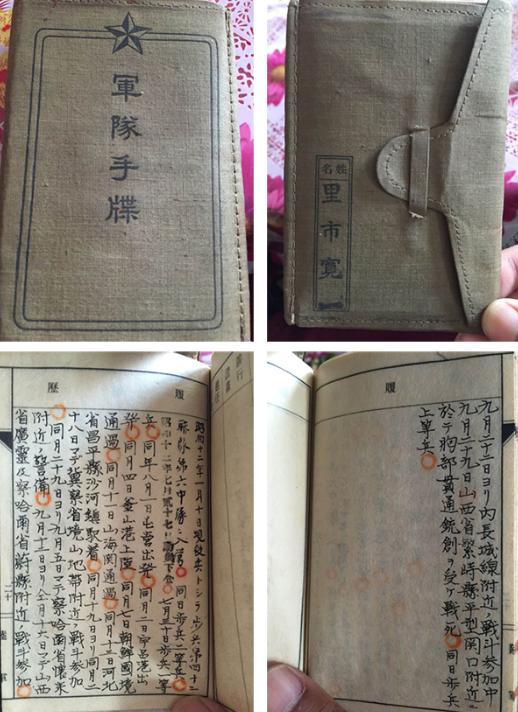 軍隊手牒
姓名
里市寛一
履歴
昭和十二年一月十日現役兵トシテ歩兵第四十二
聯隊第六中隊ニ入營同日歩兵二等兵
昭和十二年七月貳十七日動員下令七月三十日歩兵一等
兵同年八月一日屯營出発同月二日宇品港出
発同月四日釜山港上陸同月七日朝鮮國境
通過同月十一日山海関通過同月十二日河北
省昌平縣沙河鎮駅着同月十九日ヨリ同月二
十八日マデ察省境山地帯附近ノ戦斗参加
同月二十九日ヨリ九月五日マデ察哈南省懐来
附近ノ警備九月十二日ヨリ仝月十六日マデ山西
省廣靈及察哈南省蔚縣附近ノ戦斗参加
履
九月二十二日ヨリ内長城線附近ノ戦斗参加中
九月二十九日山西省繁峙縣平型関口附近ニ
於テ胸部貫通銃創ヲ受ケ戦死同日歩兵
上等兵